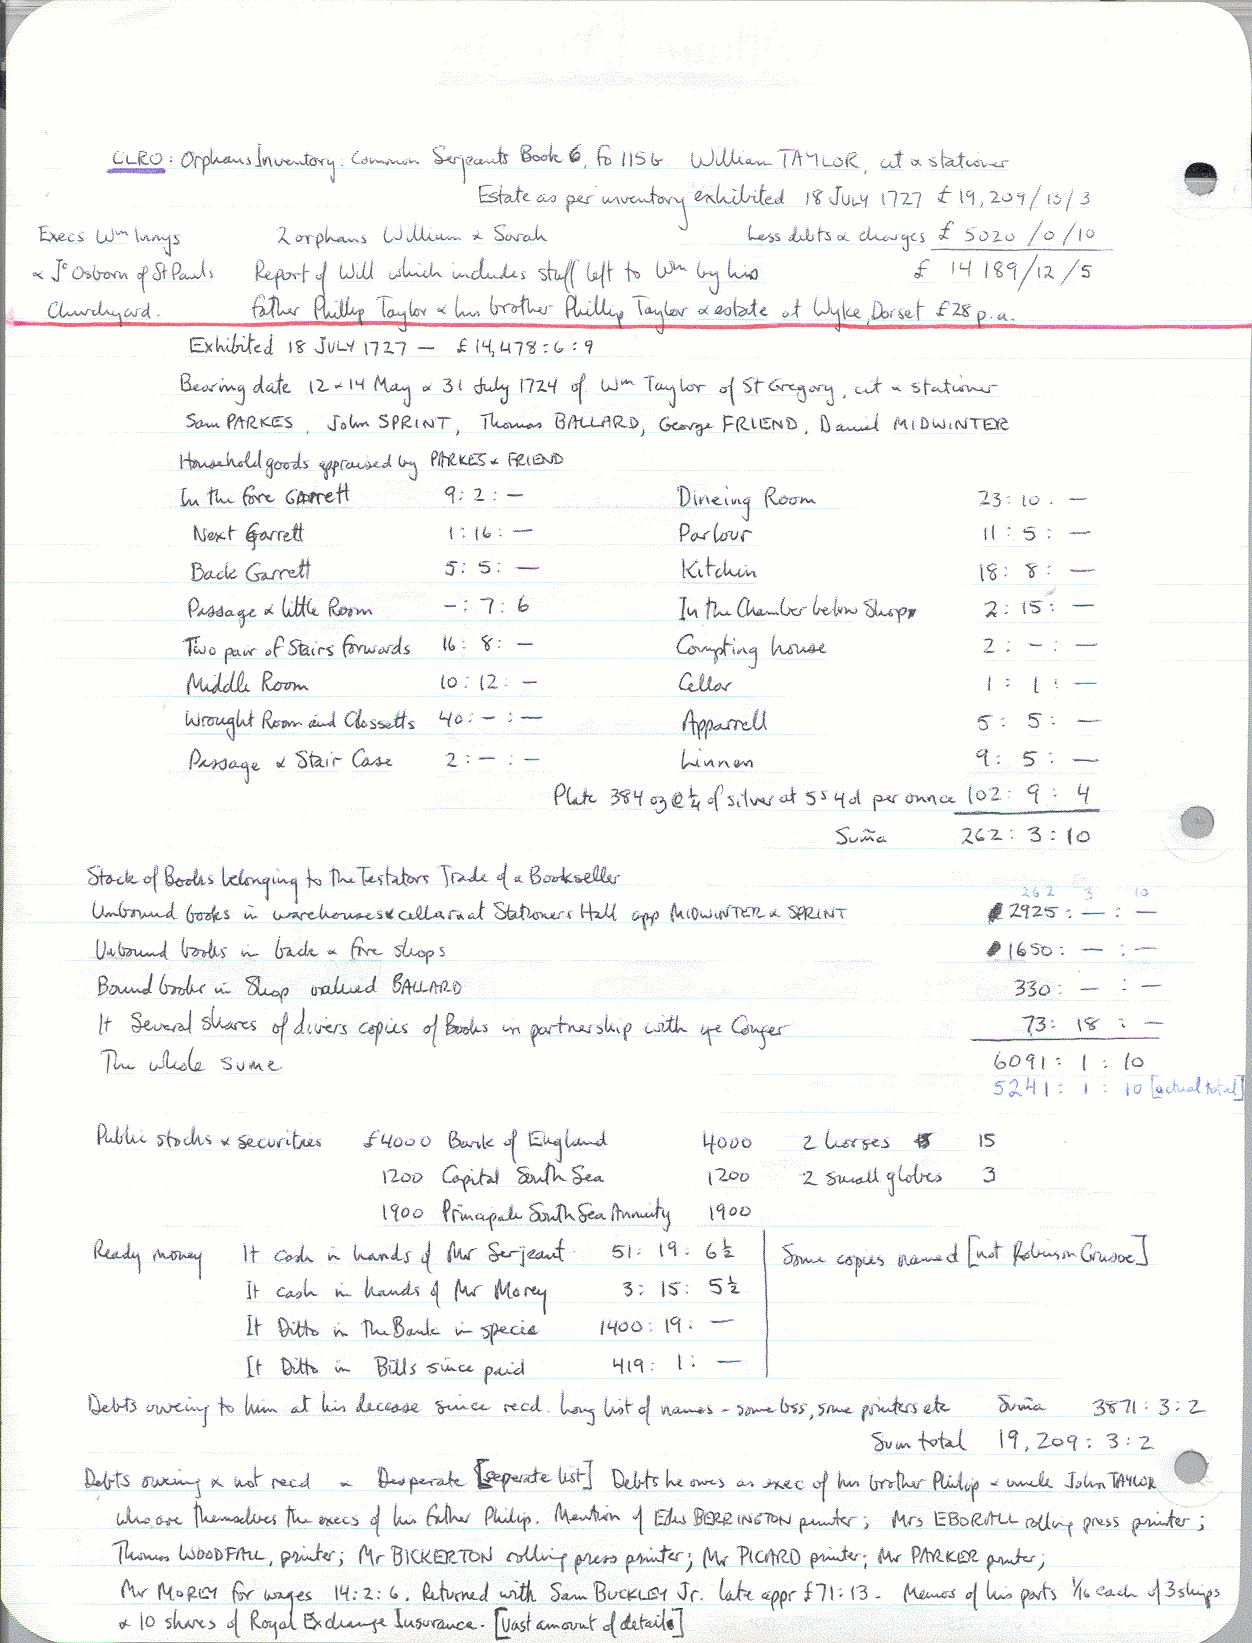 CLRO: Orphans Inventory: Common Serjeants Book 6, fo 115b. William TAYLOR, cit & stationer
Estate as per inventory exhibited 18 JULY 1727 £19,209/13/3
Execs Wm Innys 2 orphans William & Sarah Less debts & charges £ 5020/0/10
& Jo Osborn of St Pauls Report of Will which includes stuff left to Wm by his £ 14189/12/5
Churchyard. father Phillip Taylor & his brother Phillip Taylor & estate at Wyke, Dorset £28 p.a.
Exhibited 18 JULY 1727 — £14,478:6:9
Bearing date 12 & 14 May & 31 July 1724 of Wm Taylor of St Gregory, cit & stationer
Sam PARKES, John SPRINT, Thomas BALLARD, George FRIEND, Daniel MIDWINTER
Household goods appraised by PARKES & FRIEND
In the fore Garrett 9:2:— Dineing Room 23:10:—
Next Garrett 1:16:— Parlour 11:5:—
Back Garrett 5:5:— Kitchin 18:8:—
Passage & little Room —:7:6 In the Chamber below Shop 2:15:—
Two pair of Stairs forwards 16:8:— Compting house 2:—:—
Middle Room 10:12:— Cellar 1:1:—
Wrought Room and Clossetts 40:—:— Apparrell 5:5:—
Passage & Stair Case 2:—:— Linnen 9:5:—
Plate 384 oz @ ¼ of silver at 5s 4d per ounce 102:9:4
Suma 262:3:10
Stock of Books belonging to the Testators Trade of a Bookseller
262 3 10
Unbound books in warehouses & cellar at Stationers Hall app MIDWINTER & SPRINT 2925:—:—
Unbound books in back & fore shops 1650:—:—
Bound books in Shop valued BALLARD 330:—:—
It Several shares of divers copies of Books in partnership with ye Conger 73:18:—
The whole sume 6091:1:10
5241:1:10 [actual total]
Public stocks & securities £4000 Bank of England 4000 2 horses 15
1200 Capital South Sea 1200 2 small globes 3
1900 Principale South Sea Annuity 1900
Ready money It cash in hands of Mr Serjeant 51:19:6½ Some copies named [not Robinson Crusoe]
It cash in hands of Mr Morey 3:15:5½
It Ditto in The Bank in specie 1400:19:—
It Ditto in Bills since paid 419:1:—
Debts oweing to him at his decease since recd. Long list of names - some bss, some printers etc Suma 3871:3:2
Sum total 19,209:3:2
Debts oweing & not recd & Desperate [seperate list] Debts he owes as exec of his brother Philip & uncle John TAYLOR
who are themselves the execs of his father Philip. Mention of Edw BERRINGTON printer; Mrs EBORALL rolling press printer;
Thomas WOODFALL, printer; Mr BICKERTON rolling press printer; Mr PICARD printer; Mr PARKER printer;
Mr MOREY for wages 14:2:6. Returned with Sam BUCKLEY Jr. late appr £71:13. Memos of his parts 1/16 each of 3 ships
& 10 shares of Royal Exchange Insurance. [Vast amount of details]